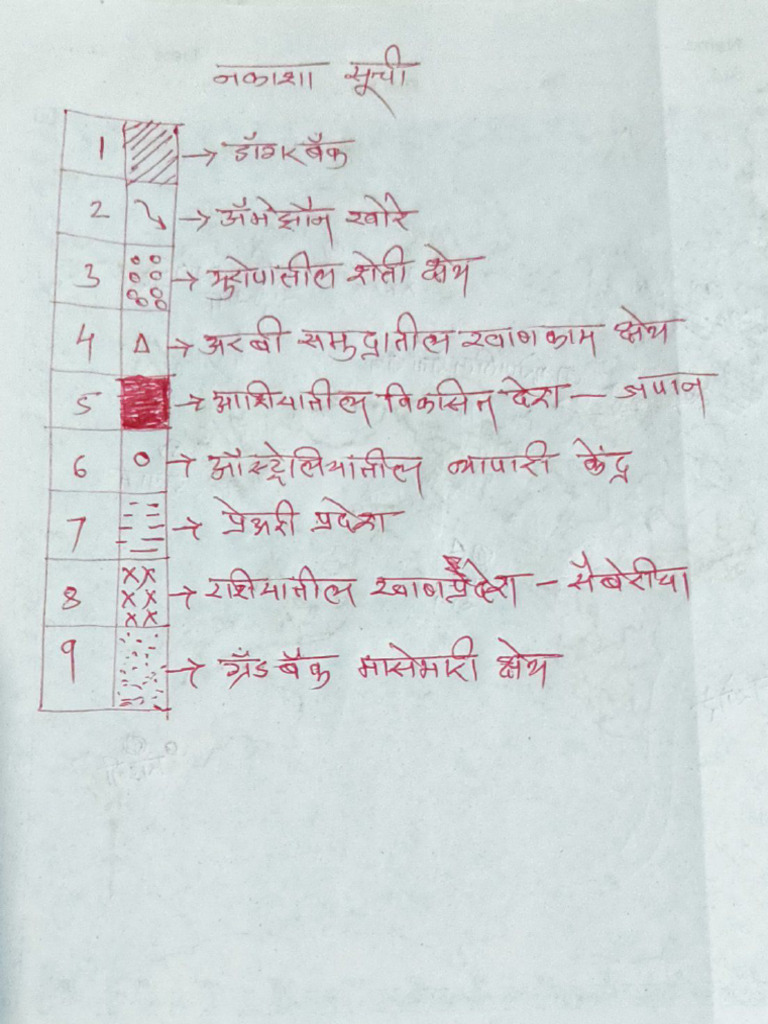 नकाशा सूची
1 → डॉगरबँक
2 → अ‍ॅमेझॉन खोरे
3 → युरोपातील शेती क्षेत्र
4 → अरबी समुद्रातील खाणकाम क्षेत्र
5 → आशियातील विकसित देश – जपान
6 → ऑस्ट्रेलियातील व्यापारी केंद्र
7 → प्रेअरी प्रदेश
8 → रशियातील खाणप्रदेश – सैबेरीया
9 → ग्रँडबँक मासेमारी क्षेत्र